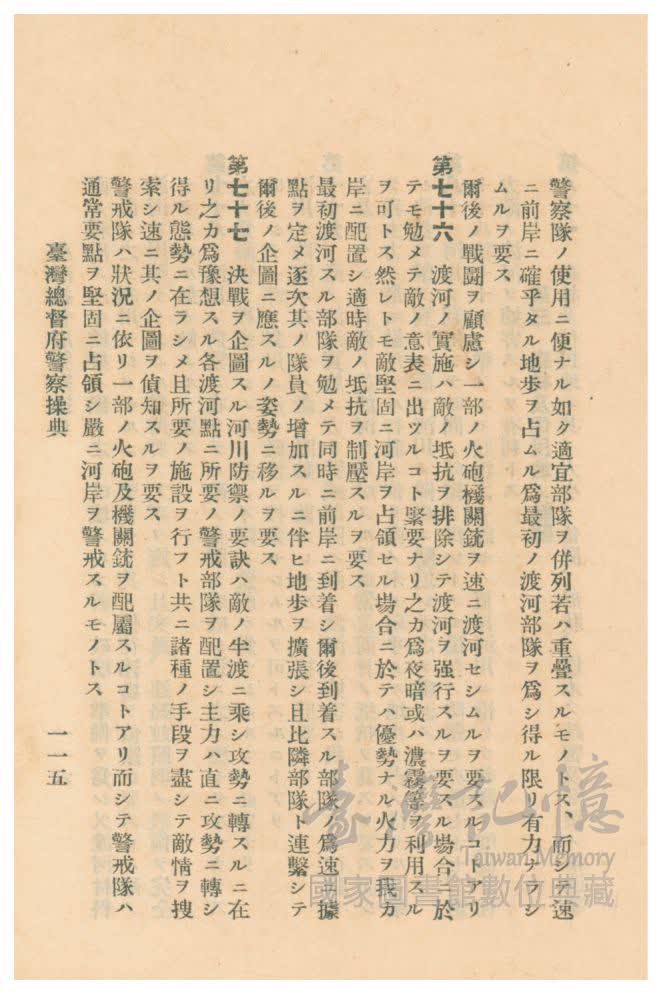 警察隊ノ使用ニ便ナル如ク適宜部隊ヲ併列若ハ重疊スルモノトス、而シテ速
ニ前岸ニ確乎タル地步ヲ占ムル爲最初ノ渡河部隊ヲ爲シ得ル限リ有力ナラシ
ムルヲ要ス
爾後ノ戰鬪ヲ顧慮シ一部ノ火砲機關銃ヲ速ニ渡河セシムルヲ要スルコトアリ
第七十六 渡河ノ實施ハ敵ノ抵抗ヲ排除シテ渡河ヲ强行スルヲ要スル場合ニ於
テモ勉メテ敵ノ意表ニ出ツルコト緊要ナリ之カ爲夜暗或ハ濃霧等ヲ利用スル
ヲ可トス然レトモ敵堅固ニ河岸ヲ占領セル場合ニ於テハ優勢ナル火力ヲ我カ
岸ニ配置シ適時敵ノ抵抗ヲ制壓スルヲ要ス
最初渡河スル部隊ヲ勉メテ同時ニ前岸ニ到着シ爾後到着スル部隊ノ爲速ニ據
點ヲ定メ逐次其ノ隊員ノ增加スルニ伴ヒ地步ヲ擴張シ且比隣部隊ト連繫シテ
爾後ノ企圖ニ應スルノ姿勢ニ移ルヲ要ス
第七十七 決戰ヲ企圖スル河川防禦ノ要訣ハ敵ノ半渡ニ乘シ攻勢ニ轉スルニ在
リ之カ爲豫想スル各渡河點ニ所要ノ警戒部隊ヲ配置シ主力ハ直ニ攻勢ニ轉シ
得ル態勢ニ在ラシメ且所要ノ施設ヲ行フト共ニ諸種ノ手段ヲ盡シテ敵情ヲ搜
索シ速ニ其ノ企圖ヲ偵知スルヲ要ス
警戒隊ハ狀況ニ依リ一部ノ火砲及機關銃ヲ配屬スルコトアリ而シテ警戒隊ハ
通常要點ヲ堅固ニ占領シ嚴ニ河岸ヲ警戒スルモノトス
臺灣總督府警察操典
一一五
臺灣記憶
Taiwan Memory
國家圖書館數位典藏